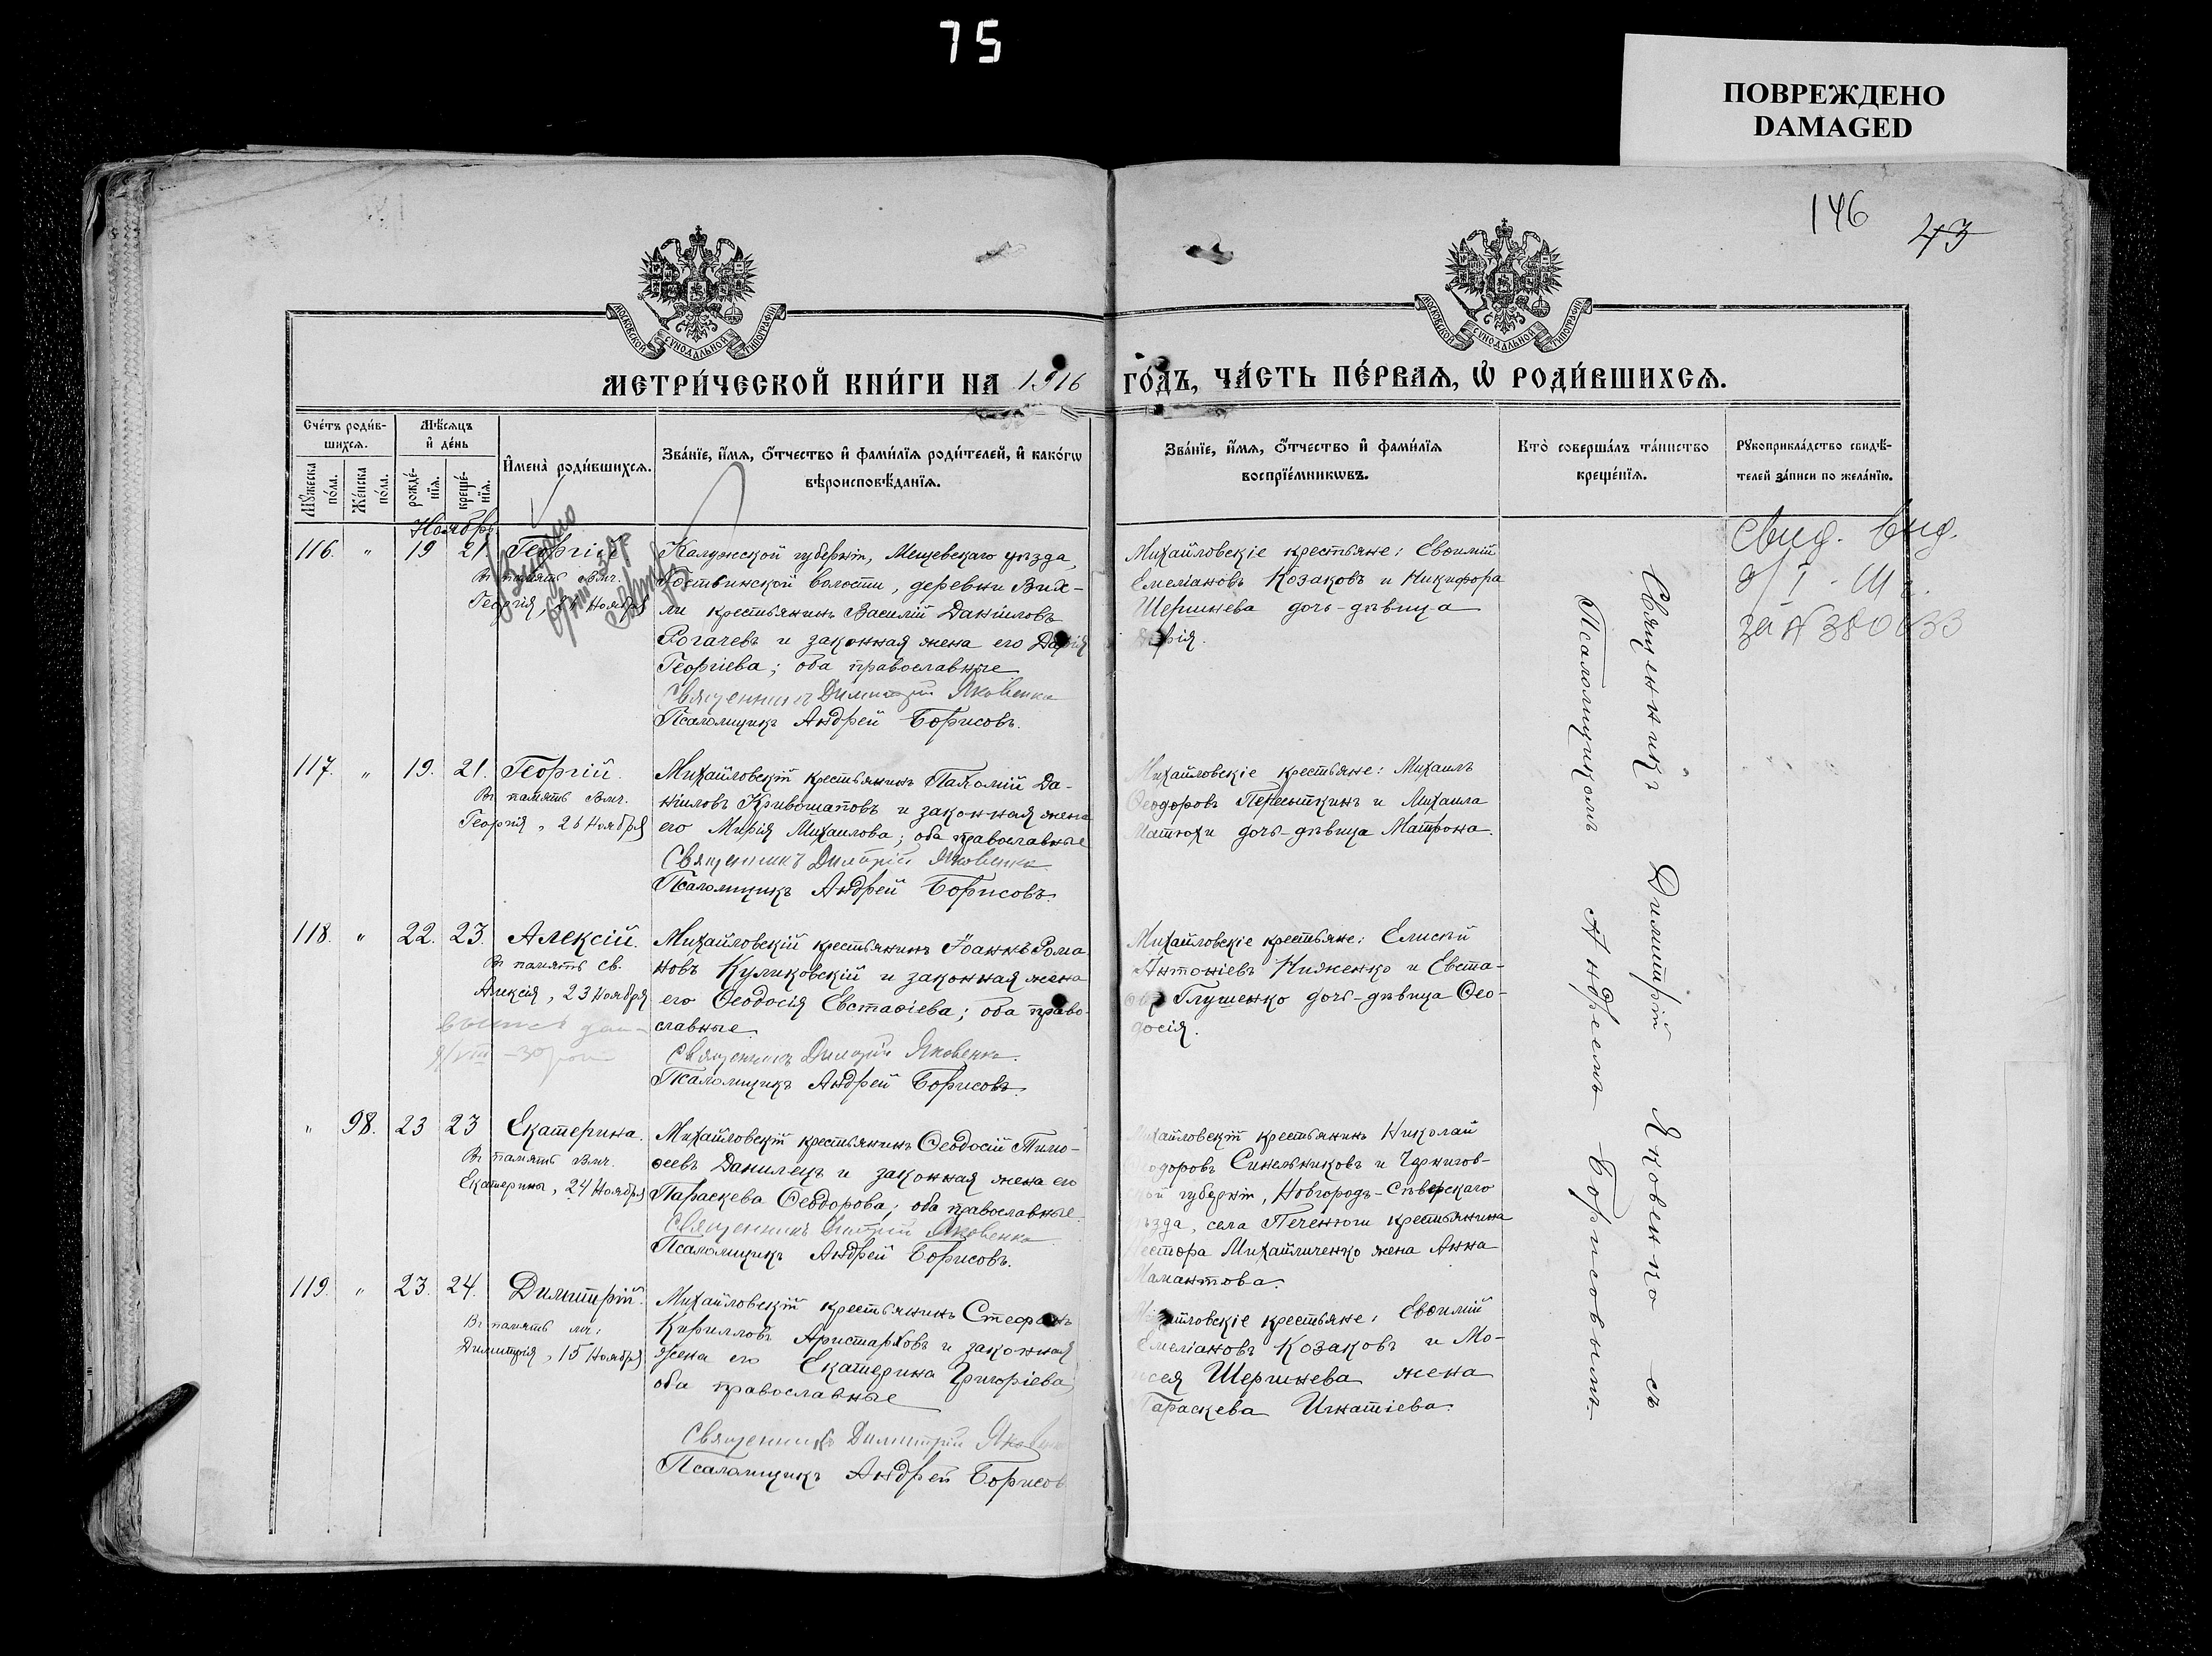 75
ПОВРЕЖДЕНО
DAMAGED
146
43
МОСКОВСКОЙ СУНОДАЛЬНОЙ ТИПОГРАФІИ
МОСКОВСКОЙ СУНОДАЛЬНОЙ ТИПОГРАФІИ
МЕТРИ́ЧЕСКОЙ КНИ́ГИ НА 1916 ГО́ДЪ, ЧА́СТЬ ПЕ́РВАѦ, Ѡ РОДИ́ВШИХСѦ.
Сче́тъ роди́в-
шихсѧ.
Мꙋжеска по́ла.
Же́нска по́ла.
Мѣ́сѧцъ
и҆ де́нь
рожде́-
нїѧ.
креще́-
нїѧ.
И҆мена̀ роди́вшихсѧ.
Зва́нїе, и҆́мѧ, ѻ҆́тчество и҆ фами́лїѧ роди́телей, и҆ како́гѡ
вѣроисповѣ́данїѧ.
Зва́нїе, и҆́мѧ, ѻ҆́тчество и҆ фами́лїѧ
воспрїе́мникѡвъ.
Кто̀ соверша́лъ та́инство
креще́нїѧ.
Рꙋкоприкла́дство свидѣ́-
телей за́писи по жела́нїю.
Ноябрь
116. " 19 21. Георгій
Въ память влмч.
Георгія, 26 Ноября
Калужской губерніи, Мещевскаго уѣзда,
волости, деревни
ли крестьянинъ Василій Даніиловъ
Рогачевъ и законная жена его Дарія
Георгіева; оба православные
Священникъ Димитрій Яковенко
Псаломщикъ Андрей Борисовъ.
Михайловскіе крестьяне: Евѳимій
Емеліановъ Козаковъ и Никифора
Шершнева дочь-дѣвица
Свид. выд.
за № 380633
117. " 19. 21. Георгій.
Въ память влмч.
Георгія, 26 Ноября
Михайловскій крестьянинъ Пахомій Да-
ніиловъ Кривошаповъ и законная жена
его Марія Михаилова; оба православные
Священникъ Димитрій Яковенко
Псаломщикъ Андрей Борисовъ.
Михайловскіе крестьяне: Михаилъ
Ѳеодоровъ Пересыпкинъ и Михаила
Матюхи дочь-дѣвица Матрона.
118. " 22. 23. Алексій.
Въ память св.
Алексія, 23 Ноября
Михайловскій крестьянинъ Іоаннъ Рома
новъ Куликовскій и законная жена
его Ѳеодосія Евстаѳіева; оба право-
славные
Священникъ Димитрій Яковенко.
Псаломщикъ Андрей Борисовъ.
Михайловскіе крестьяне: Елисей
Антоніевъ Книженко и Евста-
Глушенко дочь-дѣвица Ѳео-
досія.
" 98. 23 23 Екатерина.
Въ память влмч.
Екатерины, 24 Ноября
Михайловскій крестьянинъ Ѳеодосій Тимо-
ѳеевъ Данилецъ и законная жена его
Параскева Ѳеодорова; оба православные.
Священникъ Димитрій Яковенко
Псаломщикъ Андрей Борисовъ.
Михайловскій крестьянинъ Николай
Ѳеодоровъ Синельниковъ и Чернигов-
ской губерніи, Новгородъ-Сѣверскаго
уѣзда, села Печенюги крестьянина
Нестора Михайличенко жена Анна
Мамантова.
119. " 23. 24. Димитрій.
Въ память мч.
Димитрія, 15 Ноября
Михайловскій крестьянинъ Стефанъ
Кирилловъ Аристарховъ и законная
жена его Екатерина Григоріева;
оба православные
Священникъ Димитрій Яковенко
Псаломщикъ Андрей Борисов
Михайловскіе крестьяне: Евѳимій
Емеліановъ Козаковъ и Мо-
исея Шершнева жена
Параскева Игнатіева.
Священникъ Димитрій Яковенко съ
Псаломщикомъ Андреемъ Борисовымъ.